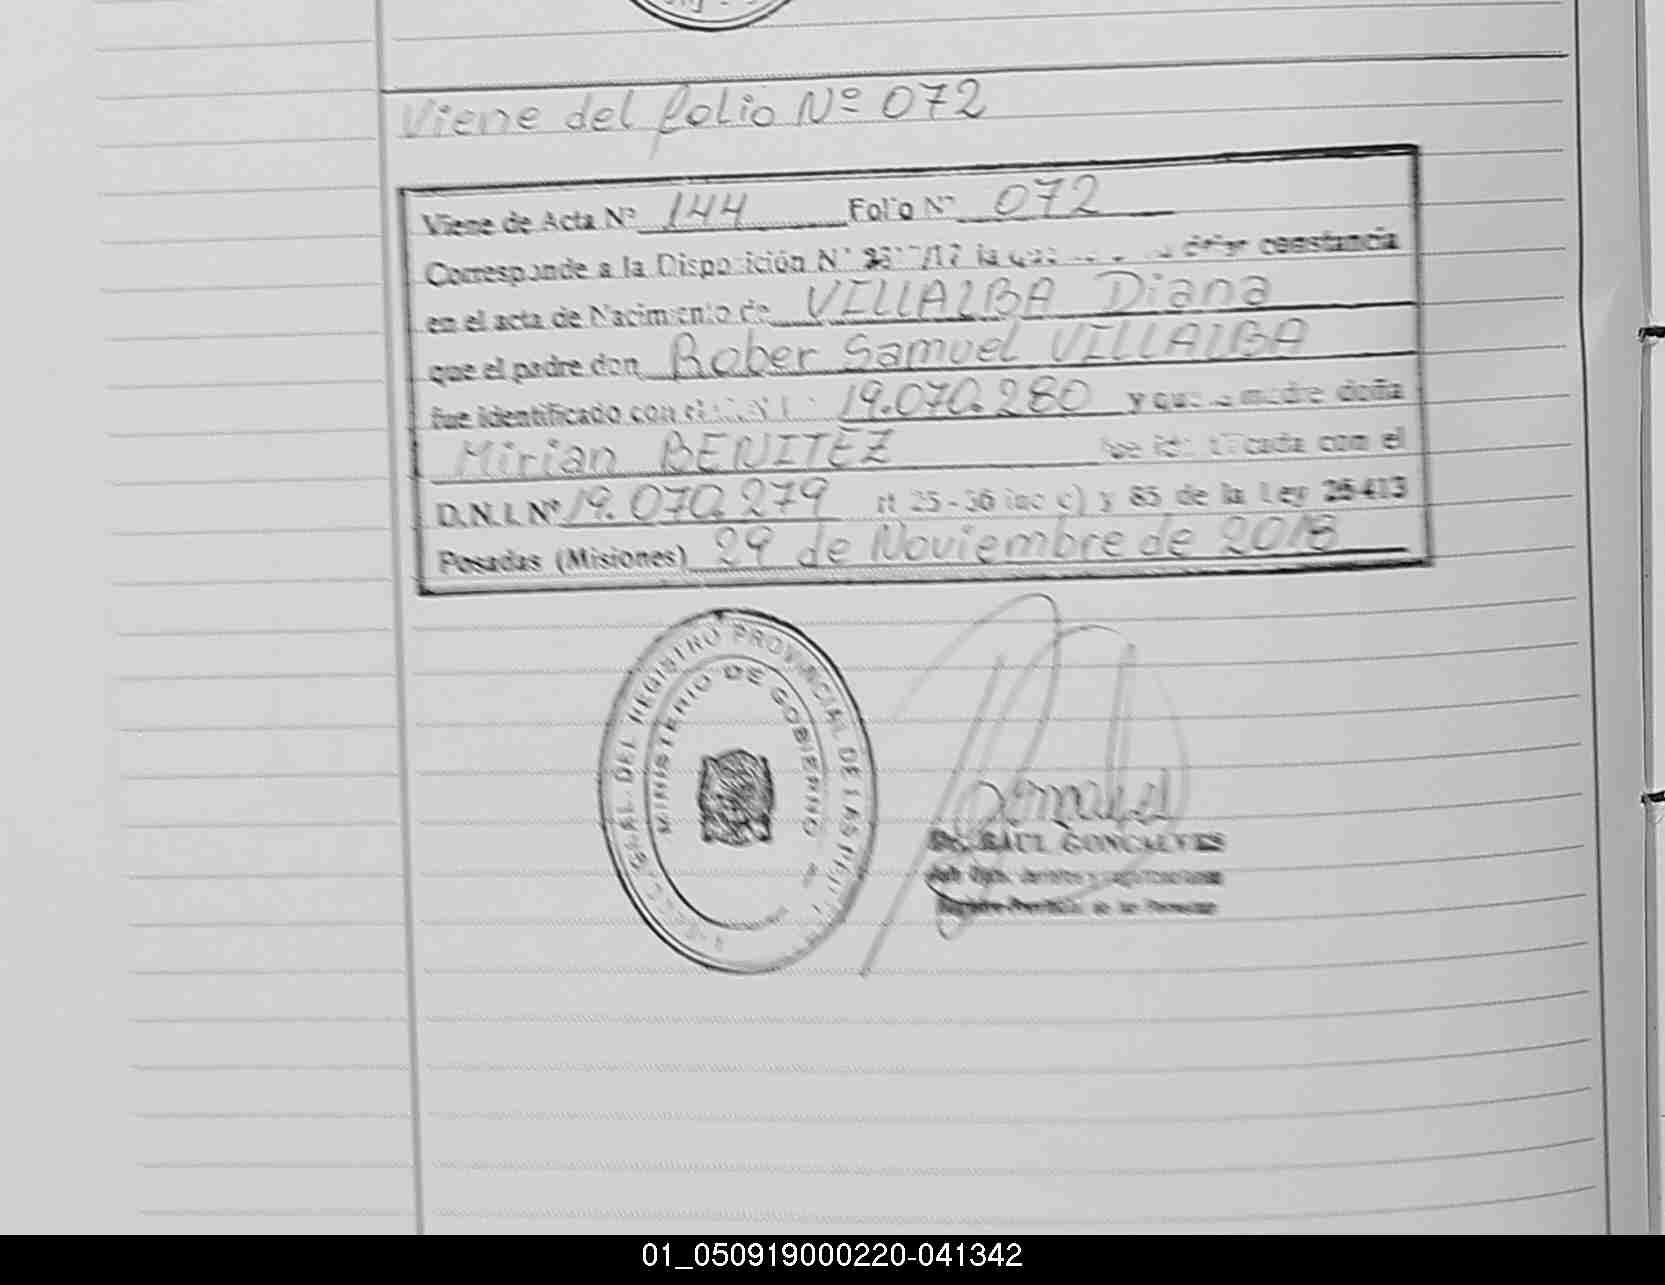 Viene del folio Nº 072
Viene de Acta Nº 144 Folio Nº 072
Corresponde a la Disposición Nº /17 la que dejar constancia
en el acta de Nacimiento de VILLALBA Diana
que el padre don Rober Samuel VILLALBA
fue identificado con el 19.070.280 y que la madre doña
Mirian BENITEZ fue identificada con el
D.N.I. Nº 19.070.279 rt 25-36 inc c) y 85 de la Ley 26413
Posadas (Misiones) 29 de Noviembre de 2018
GRAL. DEL REGISTRO PROVINCIAL DE LAS
MINISTERIO DE GOBIERNO
Dr. RAUL GONCALVES
01_050919000220-041342